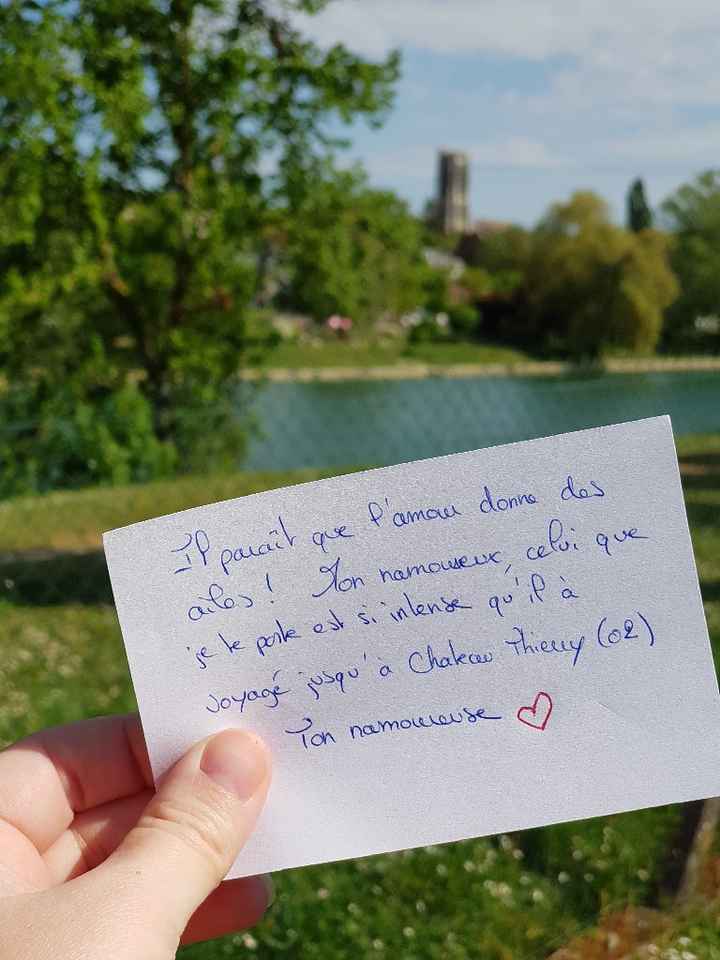 Il paraît que l'amour donne des
ailes ! Mon namoureux, celui que
je te porte est si intense qu'il à
voyagé jusqu'à Chateau Thierry (02)
Ton namoureuse ♡